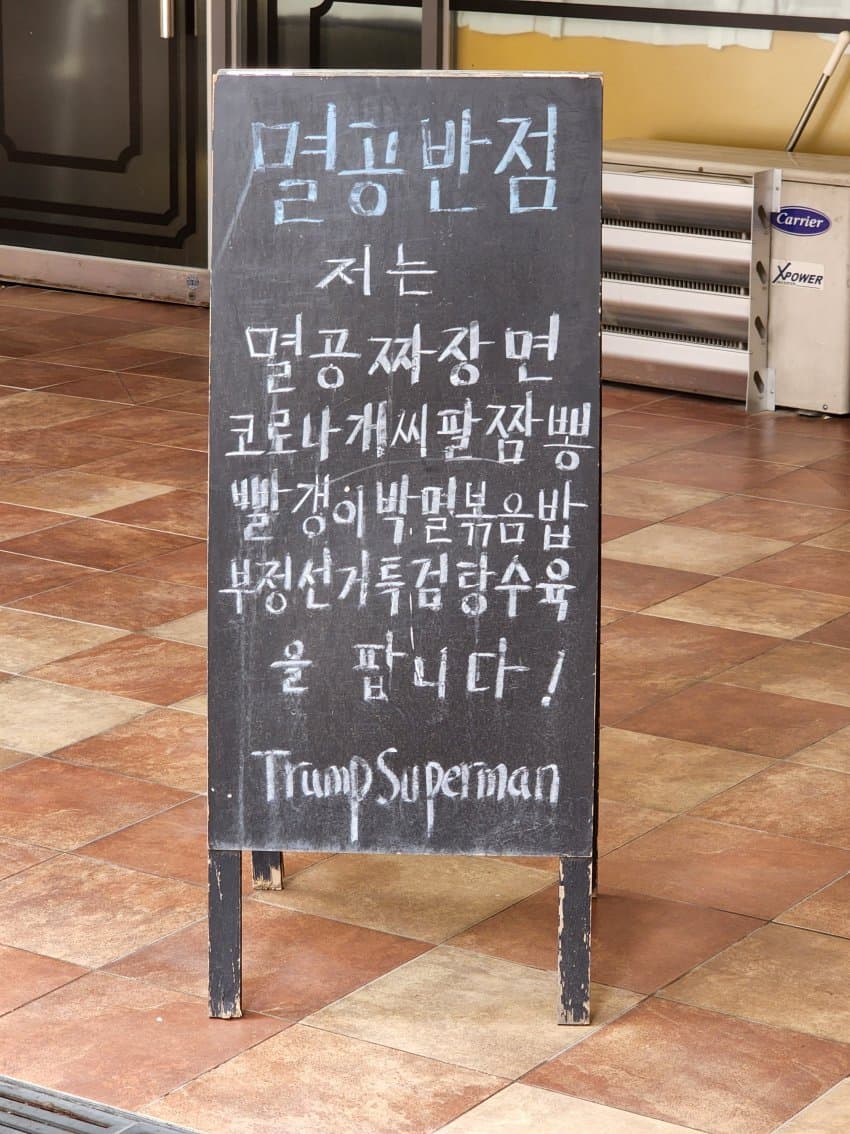 멸공반점
저는
멸공짜장면
코로나개씨팔짬뽕
빨갱이박멸볶음밥
부정선거특검탕수육
을 팝니다!
Trump Superman
Carrier
XPOWER